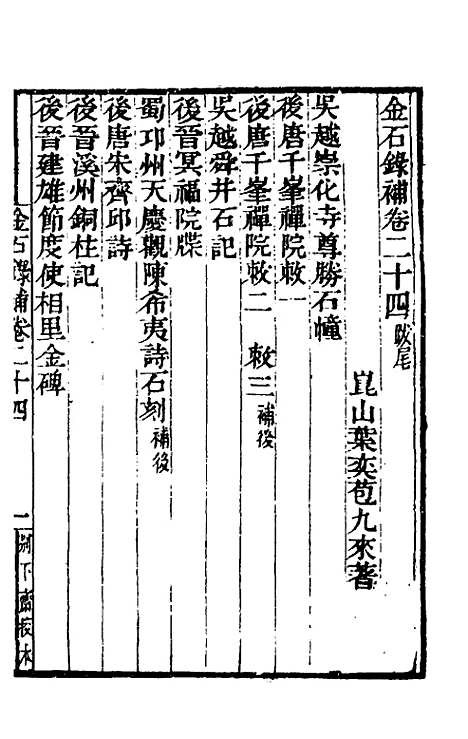 金石錄補卷二十四跋尾
崑山葉奕苞九來著
吳越崇化寺尊勝石幢
後唐千峯禪院敕一
後唐千峯禪院敕二　敕三補後
吳越舜井石記
後晉冥福院牒
蜀邛州天慶觀陳希夷詩石刻補後
後唐朱齊邱詩
後晉溪州銅柱記
後晉建雄節度使相里金碑
金石錄補卷二十四
一
別下齋校本